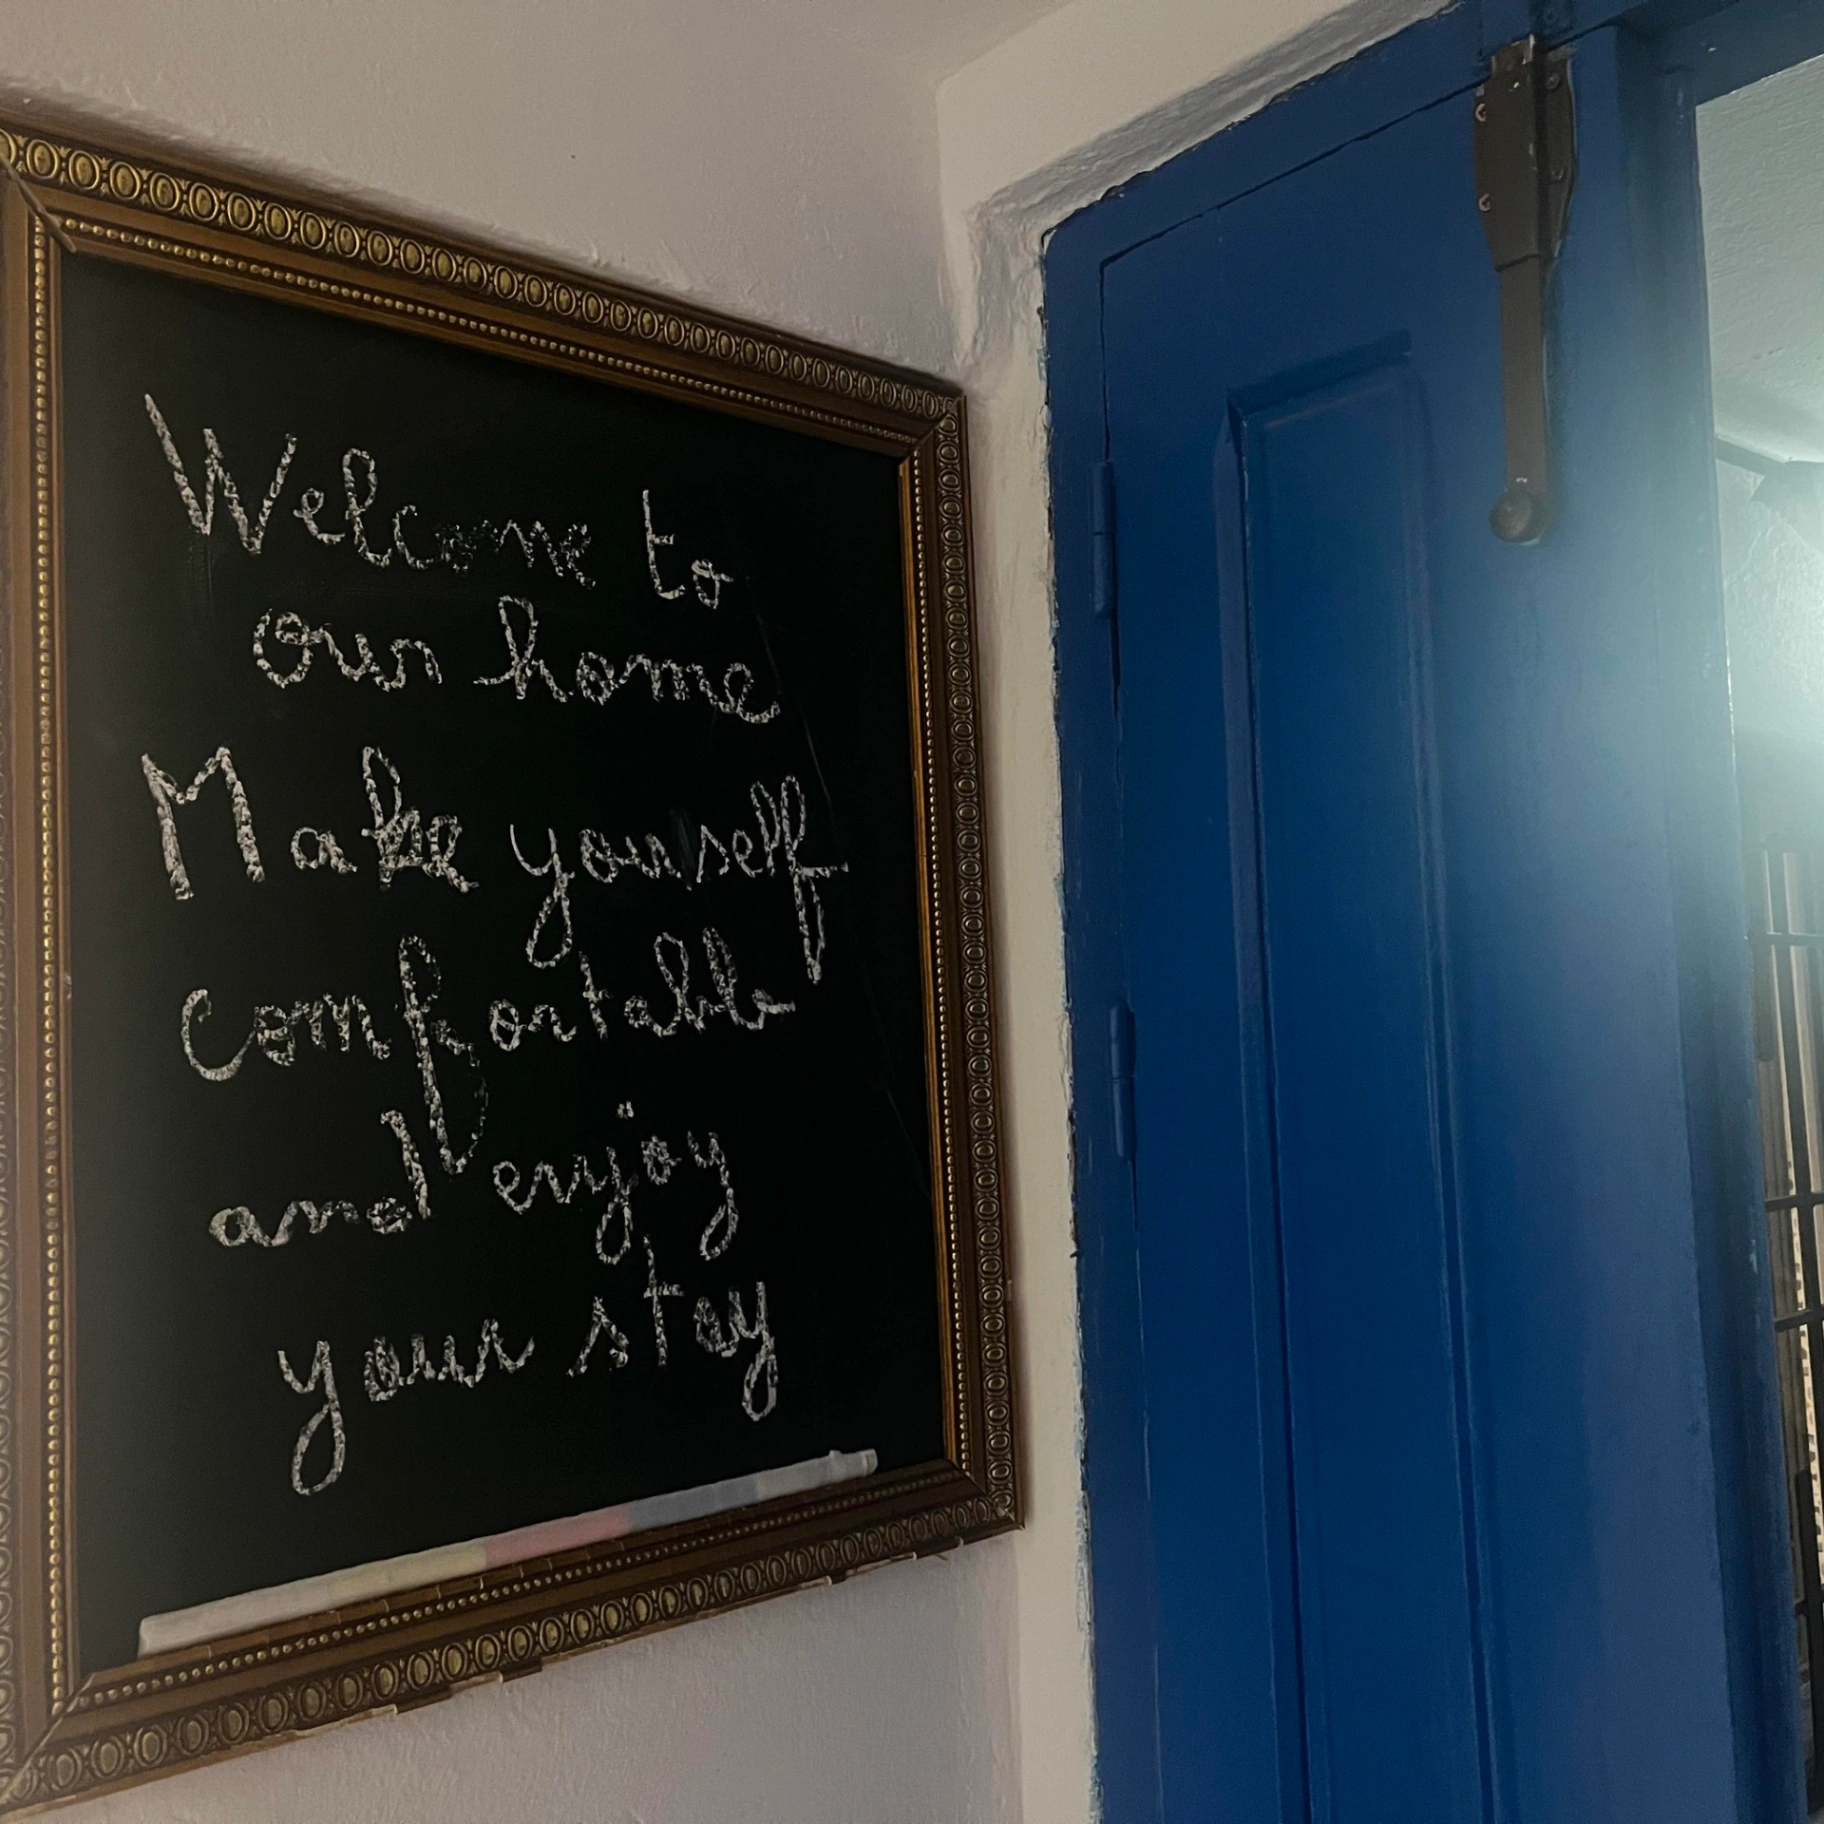 Welcome to
our home
Make yourself
comfortable
and enjoy
your stay